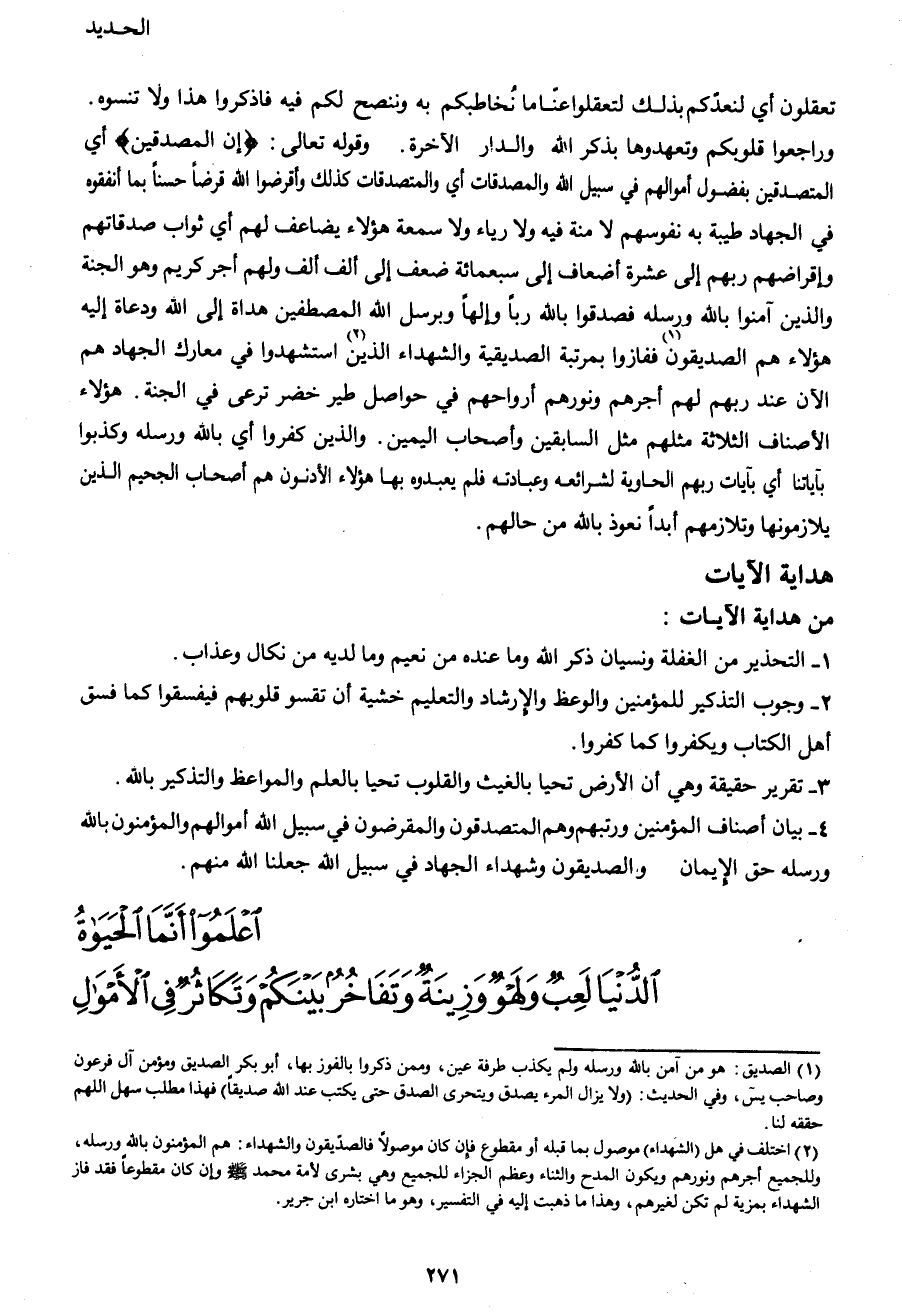 الحـديد
تعقلون أي لنعدّكم بذلـك لتعقلوا عنّـا ما نُخاطبكم به وننصح لكم فيه فاذكروا هذا ولا تنسوه.
وراجعوا قلوبكم وتعهدوها بذكر الله والـدار الآخرة. وقوله تعالى: ﴿إن المصدقين﴾ أي
المتصـدقين بفضـول أموالهم في سبيل الله والمصدقات أي والمتصدقات كذلك وأقرضوا الله قرضاً حسناً بما أنفقوه
في الجهاد طيبة به نفوسهم لا منة فيه ولا رياء ولا سمعة هؤلاء يضاعف لهم أي ثواب صدقاتهم
وإقراضهم ربهم إلى عشرة أضعاف إلى سبعمائة ضعف إلى ألف ألف ولهم أجر كريم وهو الجنة
والذين آمنوا بالله ورسله فصدقوا بالله رباً وإلهاً وبرسل الله المصطفين هداة إلى الله ودعاة إليه
هؤلاء هم الصديقون(١) ففازوا بمرتبة الصديقية والشهداء الذين(٢) استشهدوا في معارك الجهاد هم
الآن عند ربهم لهم أجرهم ونورهم أرواحهم في حواصل طير خضر ترعى في الجنة. هؤلاء
الأصناف الثلاثة مثلهم مثل السابقين وأصحاب اليمين. والذين كفروا أي بالله ورسله وكذبوا
بآياتنا أي بآيات ربهم الحـاوية لشـرائعـه وعبادتـه فلم يعبـدوه بهـا هؤلاء الأدنـون هم أصحـاب الجحيم الـذين
يلازمونها وتلازمهم أبداً نعوذ بالله من حالهم.
هداية الآيات
من هداية الآيـات :
١ـ التحذير من الغفلة ونسيان ذكر الله وما عنده من نعيم وما لديه من نكال وعذاب.
٢ـ وجوب التذكير للمؤمنين والوعظ والإرشاد والتعليم خشية أن تقسو قلوبهم فيفسقوا كما فسق
أهل الكتاب ويكفروا كما كفروا.
٣ـ تقرير حقيقة وهي أن الأرض تحيا بالغيث والقلوب تحيا بالعلم والمواعظ والتذكير بالله.
٤ـ بيان أصناف المؤمنين ورتبهم وهم المتصدقون والمقرضون في سبيل الله أموالهم والمؤمنون بالله
ورسله حق الإيمان و.الصديقون وشهداء الجهاد في سبيل الله جعلنا الله منهم.
ٱعۡلَمُوٓاْ أَنَّمَا ٱلۡحَيَوٰةُ
ٱلدُّنۡيَا لَعِبٞ وَلَهۡوٞ وَزِينَةٞ وَتَفَاخُرُۢ بَيۡنَكُمۡ وَتَكَاثُرٞ فِي ٱلۡأَمۡوَٰلِ
(١) الصديق: هو من آمن بالله ورسله ولم يكذب طرفة عين، وممن ذكروا بالفوز بها، أبو بكر الصديق ومؤمن آل فرعون
وصاحب يسٓ، وفي الحديث: (ولا يزال المرء يصدق ويتحرى الصدق حتى يكتب عند الله صديقاً) فهذا مطلب سهل اللهم
حققه لنا.
(٢) اختلف في هل (الشهداء) موصول بما قبله أو مقطوع فإن كان موصولاً فالصدّيقون والشهداء: هم المؤمنون بالله ورسله،
وللجميع أجرهم ونورهم ويكون المدح والثناء وعظم الجزاء للجميع وهي بشرى لأمة محمد ﷺ وإن كان مقطوعاً فقد فاز
الشهداء بمزية لم تكن لغيرهم، وهذا ما ذهبت إليه في التفسير، وهو ما اختاره ابن جرير.
٢٧١